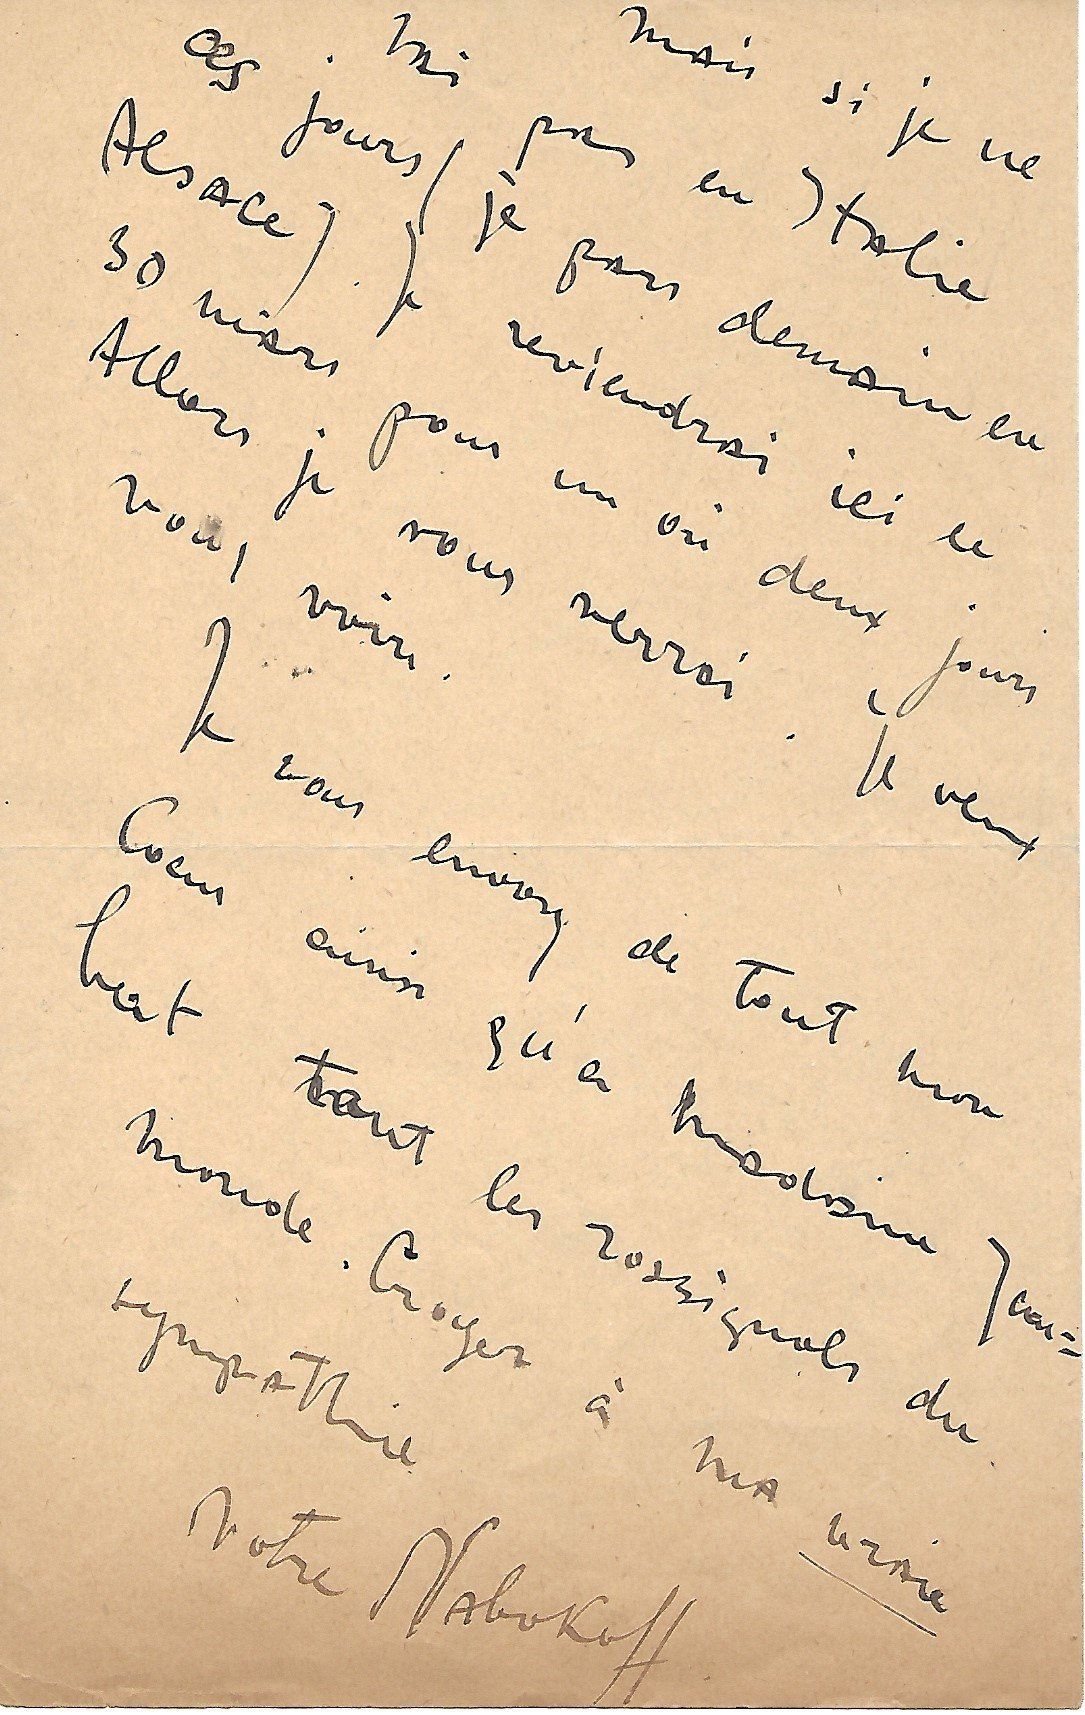 mais si je ne
vai pas en Italie
ces jours (je pars demain en
Alsace) Je reviendrai ici le
30 mars pour un où deux jours
Allors je vous verrai. Je veux
vous voir.
Je vous envoy de tout mon
Coeur ainsi qu'a Madame Jau=
bert tout les rossignols du
monde. Croyez à ma vraie
sympathie
Votre Nabokoff